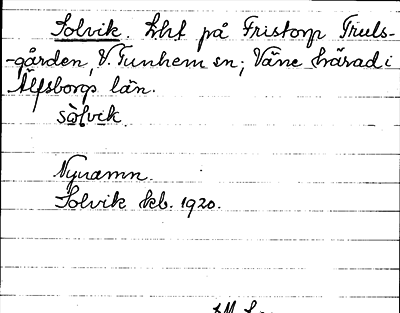 Solvik. Lht på Fristorp Truls-
-gården, V. Tunhem sn; Väne härad i
Älfsborgs län.
sòlvik
Nynamn.
Solvik kb. 1920.